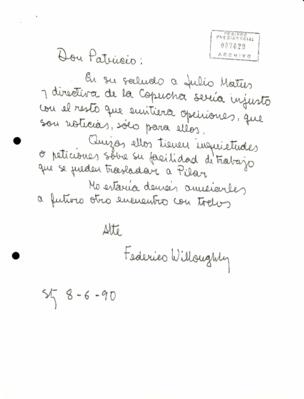 PERIODO
PRESIDENCIAL
007629
ARCHIVO
Don Patricio:
En su saludo a Julio Matus
y directiva de la Copucha sería injusto
con el resto que emitiera opiniones, que
son noticias, sólo para ellos.
Quizas ellos tienen inquietudes
o peticiones sobre su facilidad de trabajo
que se pueden trasladar a Pilar.
No estaría demás anunciarles
a futuro otro encuentro con todos
Atte
Federico Willoughby
Stg 8-6-90